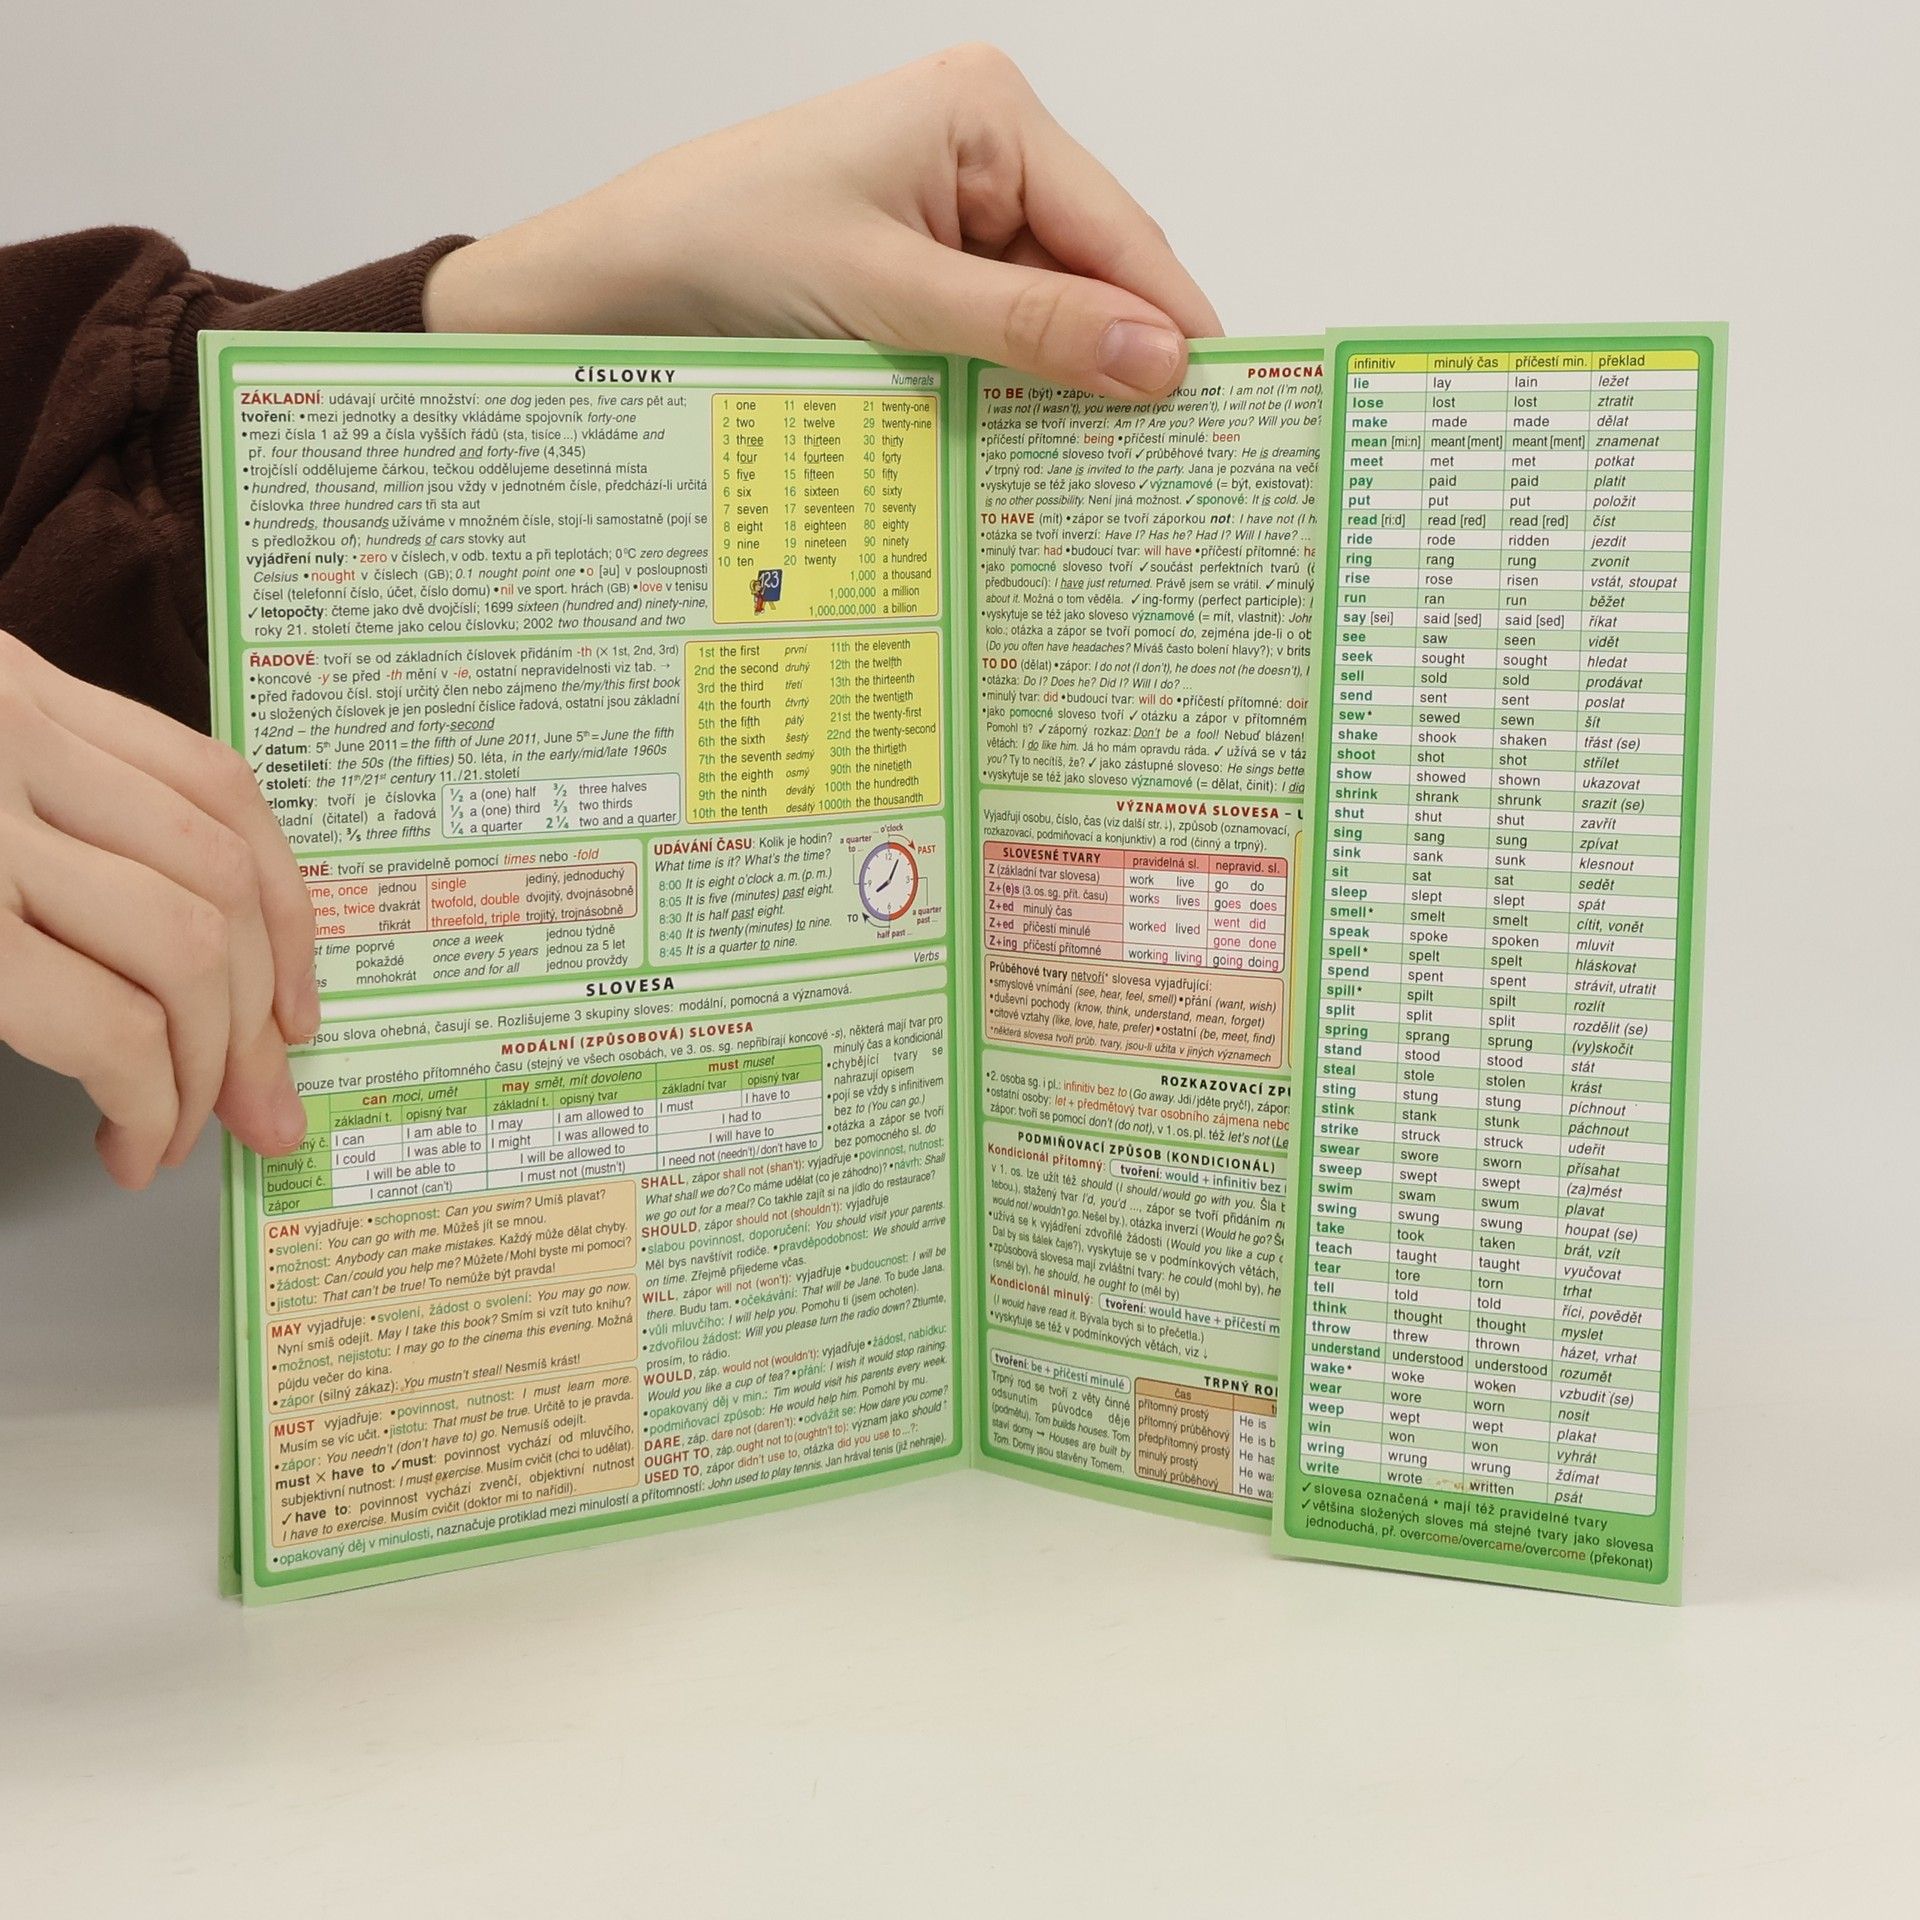 ČÍSLOVKY
Numerals
ZÁKLADNÍ: udávají určité množství: one dog jeden pes, five cars pět aut;
tvoření: •mezi jednotky a desítky vkládáme spojovník forty-one
•mezi čísla 1 až 99 a čísla vyšších řádů (sta, tisíce...) vkládáme and
př. four thousand three hundred and forty-five (4,345)
•trojčíslí oddělujeme čárkou, tečkou oddělujeme desetinná místa
•hundred, thousand, million jsou vždy v jednotném čísle, předchází-li určitá
číslovka three hundred cars tři sta aut
•hundreds, thousands užíváme v množném čísle, stojí-li samostatně (pojí se
s předložkou of); hundreds of cars stovky aut
vyjádření nuly: •zero v číslech, v odb. textu a při teplotách; 0°C zero degrees
Celsius •nought v číslech (GB); 0.1 nought point one •o [əu] v posloupnosti
čísel (telefonní číslo, účet, číslo domu) •nil ve sport. hrách (GB) •love v tenisu
✓letopočty: čteme jako dvě dvojčíslí; 1699 sixteen (hundred and) ninety-nine,
roky 21. století čteme jako celou číslovku; 2002 two thousand and two
1 one 11 eleven 21 twenty-one
2 two 12 twelve 29 twenty-nine
3 three 13 thirteen 30 thirty
4 four 14 fourteen 40 forty
5 five 15 fifteen 50 fifty
6 six 16 sixteen 60 sixty
7 seven 17 seventeen 70 seventy
8 eight 18 eighteen 80 eighty
9 nine 19 nineteen 90 ninety
10 ten 20 twenty 100 a hundred
123
1,000 a thousand
1,000,000 a million
1,000,000,000 a billion
ŘADOVÉ: tvoří se od základních číslovek přidáním -th (× 1st, 2nd, 3rd)
•koncové -y se před -th mění v -ie, ostatní nepravidelnosti viz tab. →
•před řadovou čísl. stojí určitý člen nebo zájmeno the/my/this first book
•u složených číslovek je jen poslední číslice řadová, ostatní jsou základní
142nd – the hundred and forty-second
✓datum: 5th June 2011 = the fifth of June 2011, June 5th = June the fifth
✓desetiletí: the 50s (the fifties) 50. léta, in the early/mid/late 1960s
✓století: the 11th/21st century 11./21. století
zlomky: tvoří je číslovka
kladní (čitatel) a řadová
novatel); 3/5 three fifths
1/2 a (one) half 3/2 three halves
1/3 a (one) third 2/3 two thirds
1/4 a quarter 2 1/4 two and a quarter
1st the first první 11th the eleventh
2nd the second druhý 12th the twelfth
3rd the third třetí 13th the thirteenth
4th the fourth čtvrtý 20th the twentieth
5th the fifth pátý 21st the twenty-first
6th the sixth šestý 22nd the twenty-second
7th the seventh sedmý 30th the thirtieth
8th the eighth osmý 90th the ninetieth
9th the ninth devátý 100th the hundredth
10th the tenth desátý 1000th the thousandth
BNÉ: tvoří se pravidelně pomocí times nebo -fold
ime, once jednou single jediný, jednoduchý
nes, twice dvakrát twofold, double dvojitý, dvojnásobně
imes třikrát threefold, triple trojitý, trojnásobně
st time poprvé once a week jednou týdně
pokaždé once every 5 years jednou za 5 let
es mnohokrát once and for all jednou provždy
UDÁVÁNÍ ČASU: Kolik je hodin?
What time is it? What's the time?
8:00 It is eight o'clock a. m. (p. m.)
8:05 It is five (minutes) past eight.
8:30 It is half past eight.
8:40 It is twenty (minutes) to nine.
8:45 It is a quarter to nine.
... o'clock
a quarter to...
PAST
12
3
6
9
TO
a quarter past ...
half past ...
SLOVESA
Verbs
jsou slova ohebná, časují se. Rozlišujeme 3 skupiny sloves: modální, pomocná a významová.
MODÁLNÍ (ZPŮSOBOVÁ) SLOVESA
pouze tvar prostého přítomného času (stejný ve všech osobách, ve 3. os. sg. nepřibírají koncové -s), některá mají tvar pro
minulý čas a kondicionál
•chybějící tvary se
nahrazují opisem
•pojí se vždy s infinitivem
bez to (You can go.)
•otázka a zápor se tvoří
bez pomocného sl. do
can moci, umět may smět, mít dovoleno must muset
základní t. opisný tvar základní t. opisný tvar základní tvar opisný tvar
ný č. I can I am able to I may I am allowed to I must I have to
minulý č. I could I was able to I might I was allowed to I had to
budoucí č. I will be able to I will be allowed to I will have to
zápor I cannot (can't) I must not (mustn't) I need not (needn't)/don't have to
CAN vyjadřuje: •schopnost: Can you swim? Umíš plavat?
•svolení: You can go with me. Můžeš jít se mnou.
•možnost: Anybody can make mistakes. Každý může dělat chyby.
•žádost: Can/could you help me? Můžete/Mohl byste mi pomoci?
•jistotu: That can't be true! To nemůže být pravda!
MAY vyjadřuje: •svolení, žádost o svolení: You may go now.
Nyní smíš odejít. May I take this book? Smím si vzít tuto knihu?
•možnost, nejistotu: I may go to the cinema this evening. Možná
půjdu večer do kina.
•zápor (silný zákaz): You mustn't steal! Nesmíš krást!
MUST vyjadřuje: •povinnost, nutnost: I must learn more.
Musím se víc učit. •jistotu: That must be true. Určitě to je pravda.
•zápor: You needn't (don't have to) go. Nemusíš odejít.
must × have to ✓must: povinnost vychází od mluvčího,
subjektivní nutnost: I must exercise. Musím cvičit (chci to udělat).
✓have to: povinnost vychází zvenčí, objektivní nutnost
I have to exercise. Musím cvičit (doktor mi to nařídil).
SHALL, zápor shall not (shan't): vyjadřuje •povinnost, nutnost:
What shall we do? Co máme udělat (co je záhodno)? •návrh: Shall
we go out for a meal? Co takhle zajít si na jídlo do restaurace?
SHOULD, zápor should not (shouldn't): vyjadřuje
•slabou povinnost, doporučení: You should visit your parents.
Měl bys navštívit rodiče. •pravděpodobnost: We should arrive
on time. Zřejmě přijedeme včas.
WILL, zápor will not (won't): vyjadřuje •budoucnost: I will be
there. Budu tam. •očekávání: That will be Jane. To bude Jana.
•vůli mluvčího: I will help you. Pomohu ti (jsem ochoten).
•zdvořilou žádost: Will you please turn the radio down? Ztlumte,
prosím, to rádio.
WOULD, záp. would not (wouldn't): vyjadřuje •žádost, nabídku:
Would you like a cup of tea? •přání: I wish it would stop raining.
•opakovaný děj v min.: Tim would visit his parents every week.
•podmiňovací způsob: He would help him. Pomohl by mu.
DARE, záp. dare not (daren't): •odvážit se: How dare you come?
OUGHT TO, záp. ought not to (oughtn't to): význam jako should↑
USED TO, zápor didn't use to, otázka did you use to ...?:
•opakovaný děj v minulosti, naznačuje protiklad mezi minulostí a přítomností: John used to play tennis. Jan hrával tenis (již nehraje).
POMOCNÁ
TO BE (být) •zápor rkou not: I am not (I'm not),
I was not (I wasn't), you were not (you weren't), I will not be (I won't
•otázka se tvoří inverzí: Am I? Are you? Were you? Will you be?
•příčestí přítomné: being •příčestí minulé: been
•jako pomocné sloveso tvoří ✓průběhové tvary: He is dreaming
✓trpný rod: Jane is invited to the party. Jana je pozvána na večí
•vyskytuje se též jako sloveso ✓významové (= být, existovat):
is no other possibility. Není jiná možnost. ✓sponové: It is cold. Je
TO HAVE (mít) •zápor se tvoří záporkou not: I have not (I h
•otázka se tvoří inverzí: Have I? Has he? Had I? Will I have? ...
•minulý tvar: had •budoucí tvar: will have •příčestí přítomné: ha
•jako pomocné sloveso tvoří ✓součást perfektních tvarů (
předbudoucí): I have just returned. Právě jsem se vrátil. ✓minulý
about it. Možná o tom věděla. ✓ing-formy (perfect participle):
•vyskytuje se též jako sloveso významové (= mít, vlastnit): John
kolo.; otázka a zápor se tvoří pomocí do, zejména jde-li o ob
(Do you often have headaches? Míváš často bolení hlavy?); v brits
TO DO (dělat) •zápor: I do not (I don't), he does not (he doesn't), I
•otázka: Do I? Does he? Did I? Will I do? ...
•minulý tvar: did •budoucí tvar: will do •příčestí přítomné: doin
•jako pomocné sloveso tvoří ✓otázku a zápor v přítomném
Pomohl ti? ✓záporný rozkaz: Don't be a fool! Nebuď blázen!
větách: I do like him. Já ho mám opravdu ráda. ✓užívá se v táz
you? Ty to necítíš, že? ✓jako zástupné sloveso: He sings bette
•vyskytuje se též jako sloveso významové (= dělat, činit): I did
VÝZNAMOVÁ SLOVESA – U
Vyjadřují osobu, číslo, čas (viz další str.↓), způsob (oznamovací,
rozkazovací, podmiňovací a konjunktiv) a rod (činný a trpný).
SLOVESNÉ TVARY pravidelná sl. nepravid. sl.
Z (základní tvar slovesa) work live go do
Z+(e)s (3. os. sg. přít. času) works lives goes does
Z+ed minulý čas worked lived went did
Z+ed příčestí minulé gone done
Z+ing příčestí přítomné working living going doing
Průběhové tvary netvoří* slovesa vyjadřující:
•smyslové vnímání (see, hear, feel, smell) •přání (want, wish)
•duševní pochody (know, think, understand, mean, forget)
•citové vztahy (like, love, hate, prefer) •ostatní (be, meet, find)
*některá slovesa tvoří průb. tvary, jsou-li užita v jiných významech
ROZKAZOVACÍ ZPŮ
•2. osoba sg. i pl.: infinitiv bez to (Go away. Jdi/jděte pryč!), zápor:
•ostatní osoby: let + předmětový tvar osobního zájmena nebo
zápor: tvoří se pomocí don't (do not), v 1. os. pl. též let's not (Le
PODMIŇOVACÍ ZPŮSOB (KONDICIONÁL)
Kondicionál přítomný: tvoření: would + infinitiv bez
v 1. os. lze užít též should (I should/would go with you. Šla b
tebou.), stažený tvar I'd, you'd ..., zápor se tvoří přidáním n
would not/wouldn't go. Nešel by.), otázka inverzí (Would he go? Še
•užívá se k vyjádření zdvořilé žádosti (Would you like a cup
Dal by sis šálek čaje?), vyskytuje se v podmínkových větách,
•způsobová slovesa mají zvláštní tvary: he could (mohl by), he
(směl by), he should, he ought to (měl by)
Kondicionál minulý: tvoření: would have + příčestí m
(I would have read it. Bývala bych si to přečetla.)
•vyskytuje se též v podmínkových větách, viz ↓
TRPNÝ RO
tvoření: be + příčestí minulé
Trpný rod se tvoří z věty činné
odsunutím původce děje
(podmětu). Tom builds houses. Tom
staví domy → Houses are built by
Tom. Domy jsou stavěny Tomem.
čas
přítomný prostý He is
přítomný průběhový He is b
předpřítomný prostý He has
minulý prostý He wa
minulý průběhový He wa
infinitiv minulý čas příčestí min. překlad
lie lay lain ležet
lose lost lost ztratit
make made made dělat
mean [mi:n] meant [ment] meant [ment] znamenat
meet met met potkat
pay paid paid platit
put put put položit
read [ri:d] read [red] read [red] číst
ride rode ridden jezdit
ring rang rung zvonit
rise rose risen vstát, stoupat
run ran run běžet
say [sei] said [sed] said [sed] říkat
see saw seen vidět
seek sought sought hledat
sell sold sold prodávat
send sent sent poslat
sew* sewed sewn šít
shake shook shaken třást (se)
shoot shot shot střílet
show showed shown ukazovat
shrink shrank shrunk srazit (se)
shut shut shut zavřít
sing sang sung zpívat
sink sank sunk klesnout
sit sat sat sedět
sleep slept slept spát
smell* smelt smelt cítit, vonět
speak spoke spoken mluvit
spell* spelt spelt hláskovat
spend spent spent strávit, utratit
spill* spilt spilt rozlít
split split split rozdělit (se)
spring sprang sprung (vy)skočit
stand stood stood stát
steal stole stolen krást
sting stung stung píchnout
stink stank stunk páchnout
strike struck struck udeřit
swear swore sworn přísahat
sweep swept swept (za)mést
swim swam swum plavat
swing swung swung houpat (se)
take took taken brát, vzít
teach taught taught vyučovat
tear tore torn trhat
tell told told říci, povědět
think thought thought myslet
throw threw thrown házet, vrhat
understand understood understood rozumět
wake* woke woken vzbudit (se)
wear wore worn nosit
weep wept wept plakat
win won won vyhrát
wring wrung wrung ždímat
write wrote written psát
✓slovesa označená * mají též pravidelné tvary
✓většina složených sloves má stejné tvary jako slovesa
jednoduchá, př. overcome/overcame/overcome (překonat)